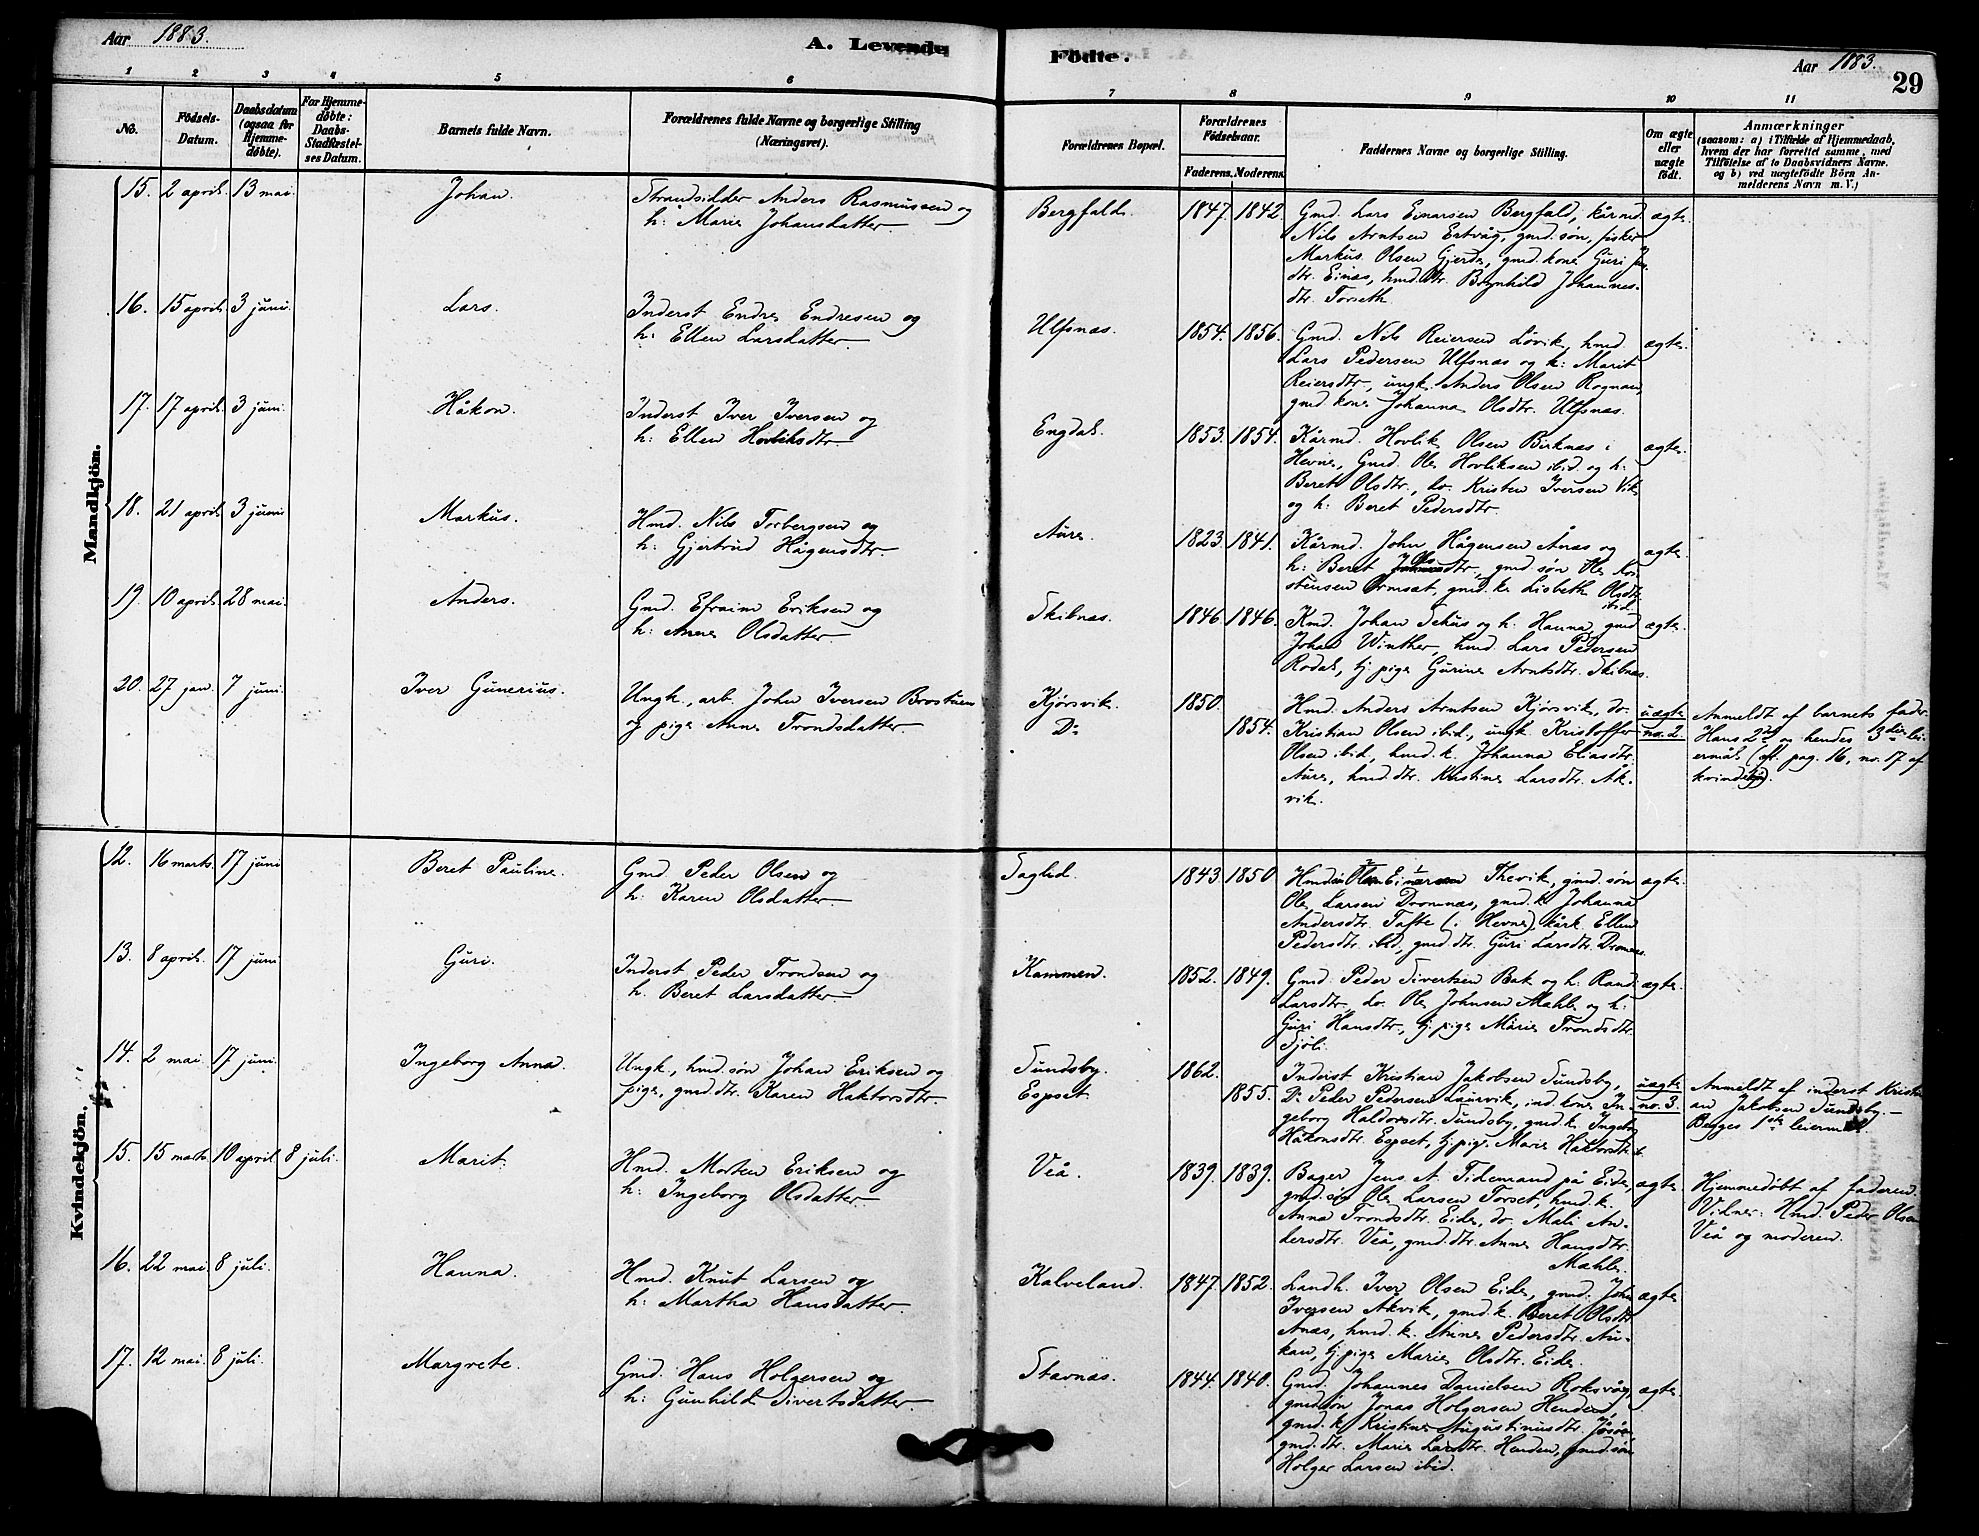 Aar 1883.
A. Levende Födte.
Aar 1883.
29
1 2 3 4 5 6 7 8 9 10 11
No.
Födsels-Datum.
Daabsdatum (ogsaa for Hjemme-döbte).
For Hjemme-döbte: Daabs-Stadfæstel-ses Datum.
Barnets fulde Navn.
Forældrenes fulde Navne og borgerlige Stilling (Næringsvei).
Forældrenes Bopæl.
Forældrenes Födselsaar.
Faderens. Moderens.
Faddernes Navne og borgerlige Stilling.
Om ægte eller uægte födt.
Anmærkninger
(saasom: a) i Tilfælde af Hjemmedaab,
hvem der har forrettet samme, med
Tilföielse af to Daabsvidners Navne.
og b) ved uægtefödte Börn An-
melderens Navn m.V.)
Mandkjön.
15. 2 april. 13 mai. Johan. Strandsidder Anders Rasmussen og
h: Marie Johansdatter.
Bergfald. 1847. 1842. Gmd. Lars Einarsen Bergfald, kårmd.
Nils Arntsen Ertvåg, gmd. søn, fisker
Markus Olsen Gjerde, gmd. kone Guri
dtr. Einas, hmd. dtr. Brynhild Johannes-
dtr. Torseth.
ægte.
16. 15 april. 3 juni. Lars. Inderst Endre Endresen og
h: Ellen Larsdatter.
Ulfsnas. 1854. 1856. Gmd. Nils Reiersen Lövik, hmd.
Lars Pedersen Ulfsnas og k: Marit
Reiersdtr, ungk. Anders Olsen Rognan,
gmd. kone Johanna Olsdtr. Ulfsnas.
ægte.
17. 17 april. 3 juni. Håkon. Inderst Iver Iversen og
h: Ellen Hovliksdtr
Engdal. 1853. 1854. Kårmd. Hovlik Olsen Birknas i
Hevne, Gmd. Ole Hovliksen ibid. og h:
Beret Olsdtr., do. Kristen Iversen Vik
og h: Beret Pedersdtr.
ægte.
18. 21 april. 3 juni. Markus. Hmd. Nils Torbergsen og
h: Gjertrud Hågensdtr
Aure. 1823. 1841. Kårmd. John Hågensen Ånas og
h: Beret Olsdtr, gmd. søn Ole Kri-
stensen Ormsæt, gmd. k. Lisbeth Olsdtr.
ibid.
ægte.
19. 10 april. 28 mai. Anders. Gmd. Efraim Eriksen og
h: Anne Olsdatter
Skibnas. 1846. 1846. Kmd. Johan Schüs og h: Hanna, gmd.
Johan Winther, hmd. Lars Pedersen
Rodal, tj. pige Gurine Arntsdtr. Skibnas.
ægte.
20. 27 jan. 7 juni. Iver Gunerius. Ungk., arb. John Iversen Brostuen
og pige Anne Trondsdatter.
Kjörsvik. Do 1850. 1854. Hmd. Anders Arntsen Kjörsvik, do.
Kristian Olsen ibid., ungk. Kristoffer
Olsen ibid., hmd. k. Johanna Eliasdtr.
Aure, hmd. dtr. Kristine Larsdtr. Åk-
vik.
uægte no. 2.
Anmeldt af barnets fader.
Hans 2det og hendes 3die lei-
ermål (cfr. pag. 16, no. 17 af
kvindekj).
Kvindekjön.
12. 16 marts. 17 juni. Beret Pauline. Gmd. Peder Olsen og
h: Karen Olsdatter
Taglid. 1843. 1850. Einarsen Thevik, gmd. søn
Ole Larsen Dromnas, gmd. k. Johanna
Andersdtr. Tafte (i Hevne), kårk. Ellen
Pedersdtr. ibid, gmd. dtr. Guri Larsdtr. Dromnas.
ægte.
13. 8 april. 17 juni. Guri. Inderst Peder Trondsen og
h. Beret Larsdatter
Kammen. 1852. 1849. Gmd. Peder Sivertsen Bak og h: Rand.
Larsdtr, do. Ole Johnsen Mahle og h:
Guri Hansdtr., tj. pige Marie Trondsdtr.
Sjöli.
ægte.
14. 2 mai. 17 juni. Ingeborg Anna. Ungk., hmd. søn Johan Eriksen og
pige, gmd. dtr. Karen Haktorsdtr.
Sundsby. Espset. 1862. 1855. Inderst Kristian Jakobsen Sundsby,
Do Peder Pedersen Laurvik, ind. kone In-
geborg Haldorsdtr. Sundsby, gmd. k. Ingeb.
Håkonsdtr. Espset, tj. pige Marie Haktorsdtr.
uægte no. 3.
Anmeldt af inderst Kristi-
an Jakobsen Sundsby.
Begges 1ste leiermål.
15. 15 marts. 10 april. 8 juli. Marit. Hmd. Morten Eriksen og
h: Ingeborg Olsdatter
Veå. 1839. 1839. Bager Jens A. Tidemand på Eide,
gmd. søn Ole Larsen Torset, hmd. k.
Anna Trondsdtr. Eide, do. Mali An-
dersdtr. Veå, gmd. dtr. Anne Hansdtr.
Mahle.
ægte.
Hjemmedøbt af faderen.
Vidner: Hmd. Peder Olsen
Veå og moderen.
16. 22 mai. 8 juli. Hanna. Hmd. Knut Larsen og
h: Martha Hansdatter
Kalveland. 1847. 1852. Landh. Iver Olsen Eide, gmd. John
Iversen Akvik, gmd. k. Beret Olsdtr.
Anas, hmd. k. Anne Pedersdtr. Au-
kan, tj. pige Marie Olsdtr. Eide.
ægte.
17. 12 mai. 8 juli. Margrete. Gmd. Hans Holgersen og
h: Gunhild Sivertsdatter.
Stavnas. 1844. 1840. Gmd. Johannes Danielsen Roksvåg,
gmd. søn Jonas Holgersen Henden,
gmd. k. Kristine Augustinusdtr.
gmd. dtr. Marie Larsdtr. Henden, gmd. søn
Holger Larsen ibid.
ægte.